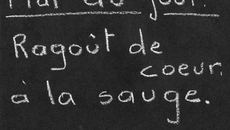 Plat du jour.
Ragoût de
coeur
à la sauge.